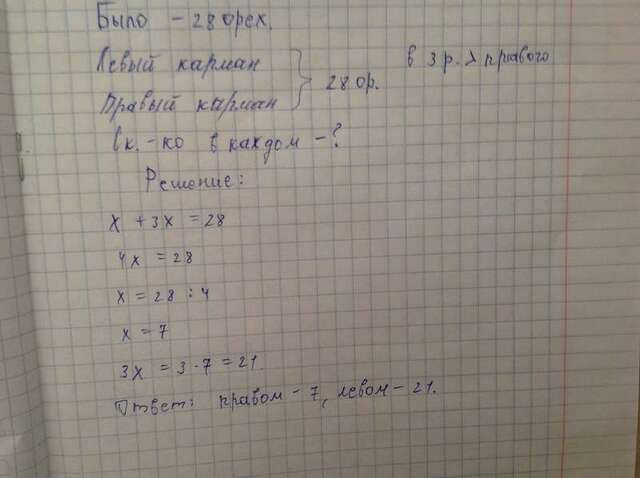 Было - 28 орех.
Левый карман } 28 ор. в 3 р. > правого
Правый карман
Ск.-ко в каждом - ?
Решение:
x + 3x = 28
4x = 28
x = 28 : 4
x = 7
3x = 3 · 7 = 21
Ответ: правом - 7, левом - 21.